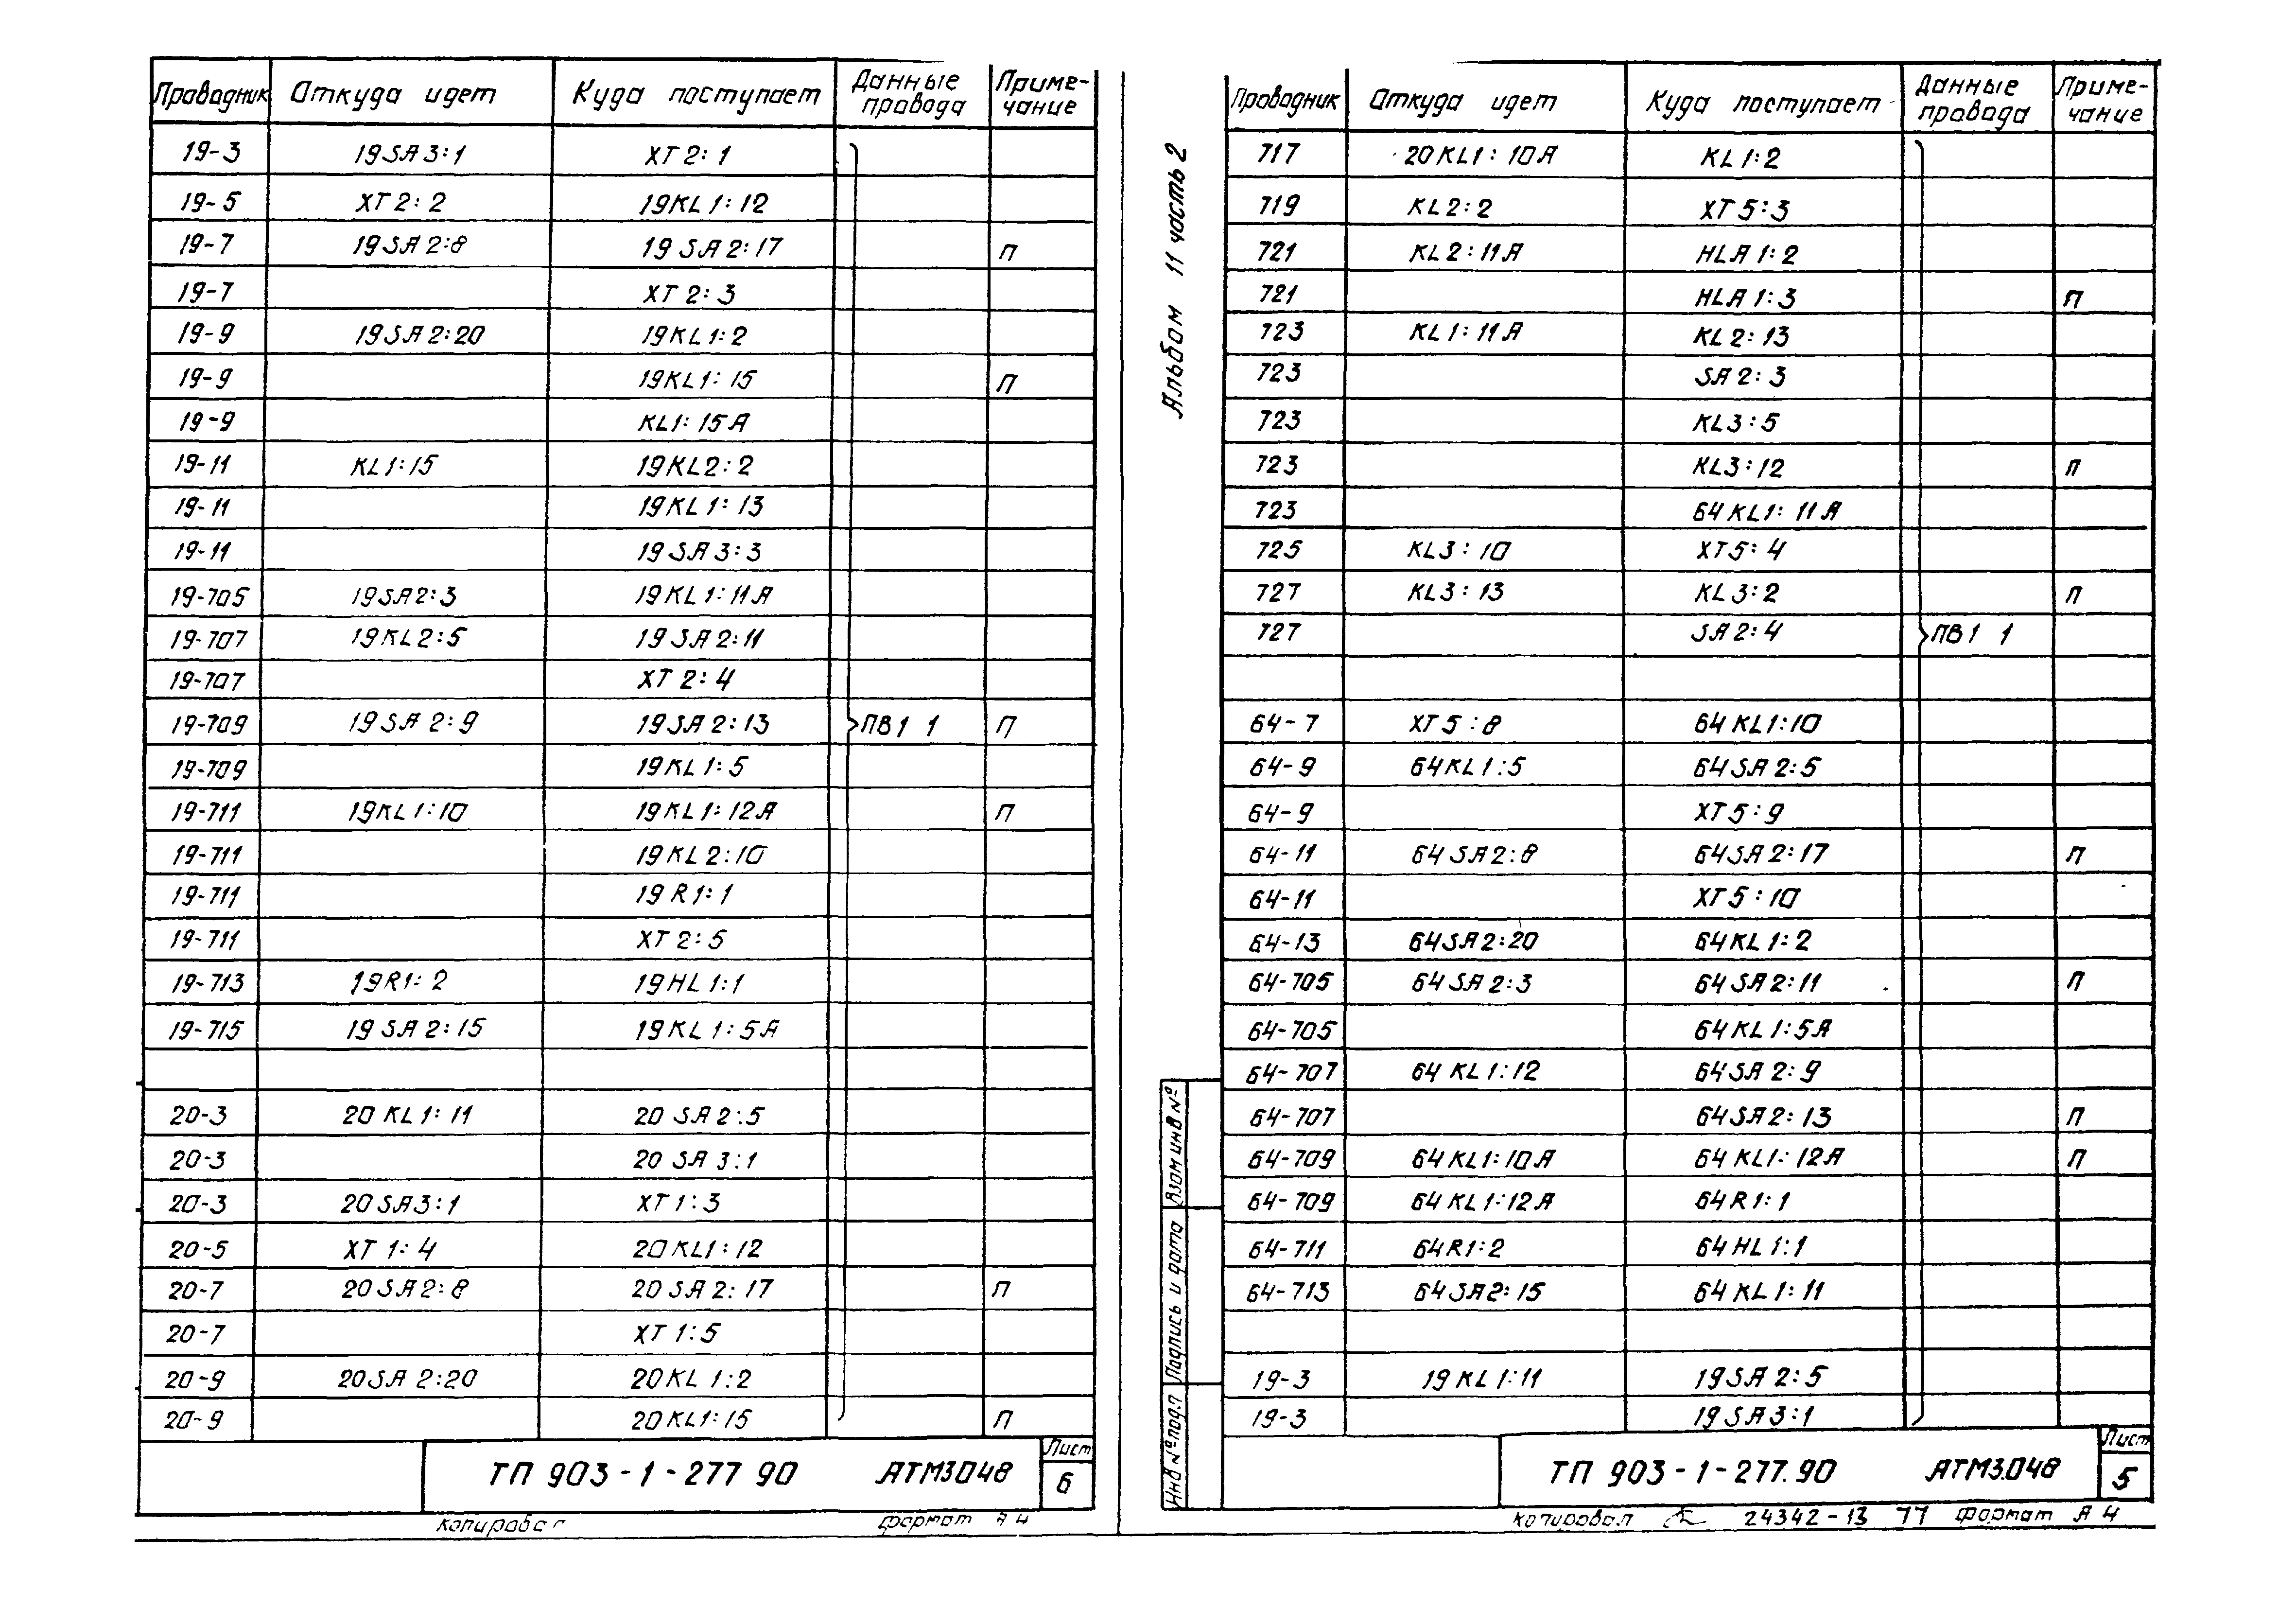 Проводник Откуда идет Куда поступает Данные провода Приме-чание
19-3 19SA3:1 XT2:1
19-5 XT2:2 19KL1:12
19-7 19SA2:8 19SA2:17 П
19-7 XT2:3
19-9 19SA2:20 19KL1:2
19-9 19KL1:15 П
19-9 KL1:15A
19-11 KL1:15 19KL2:2
19-11 19KL1:13
19-11 19SA3:3
19-705 19SA2:3 19KL1:11A
19-707 19KL2:5 19SA2:11
19-707 XT2:4
19-709 19SA2:9 19SA2:13 ПВ1 1 П
19-709 19KL1:5
19-711 19KL1:10 19KL1:12A П
19-711 19KL2:10
19-711 19R1:1
19-711 XT2:5
19-713 19R1:2 19HL1:1
19-715 19SA2:15 19KL1:5A
20-3 20KL1:11 20SA2:5
20-3 20SA3:1
20-3 20SA3:1 XT1:3
20-5 XT1:4 20KL1:12
20-7 20SA2:8 20SA2:17 П
20-7 XT1:5
20-9 20SA2:20 20KL1:2
20-9 20KL1:15 П
ТП 903-1-277 90 АТМ3.048 Лист 6
Копировал формат А4
Альбом 11 часть 2
Проводник Откуда идет Куда поступает Данные провода Приме-чание
717 20KL1:10A KL1:2
719 KL2:2 XT5:3
721 KL2:11A HLA1:2
721 HLA1:3 П
723 KL1:11A KL2:13
723 SA2:3
723 KL3:5
723 KL3:12 П
723 64KL1:11A
725 KL3:10 XT5:4
727 KL3:13 KL3:2 П
727 SA2:4 ПВ1 1
64-7 XT5:8 64KL1:10
64-9 64KL1:5 64SA2:5
64-9 XT5:9
64-11 64SA2:8 64SA2:17 П
64-11 XT5:10
64-13 64SA2:20 64KL1:2
64-705 64SA2:3 64SA2:11 П
64-705 64KL1:5A
64-707 64KL1:12 64SA2:9
64-707 64SA2:13 П
64-709 64KL1:10A 64KL1:12A П
64-709 64KL1:12A 64R1:1
64-711 64R1:2 64HL1:1
64-713 64SA2:15 64KL1:11
19-3 19KL1:11 19SA2:5
19-3 19SA3:1
Инв № подл Подпись и дата Взам инв №
ТП 903-1-277.90 АТМ3.048 Лист 5
Копировал 24342-13 77 Формат А4